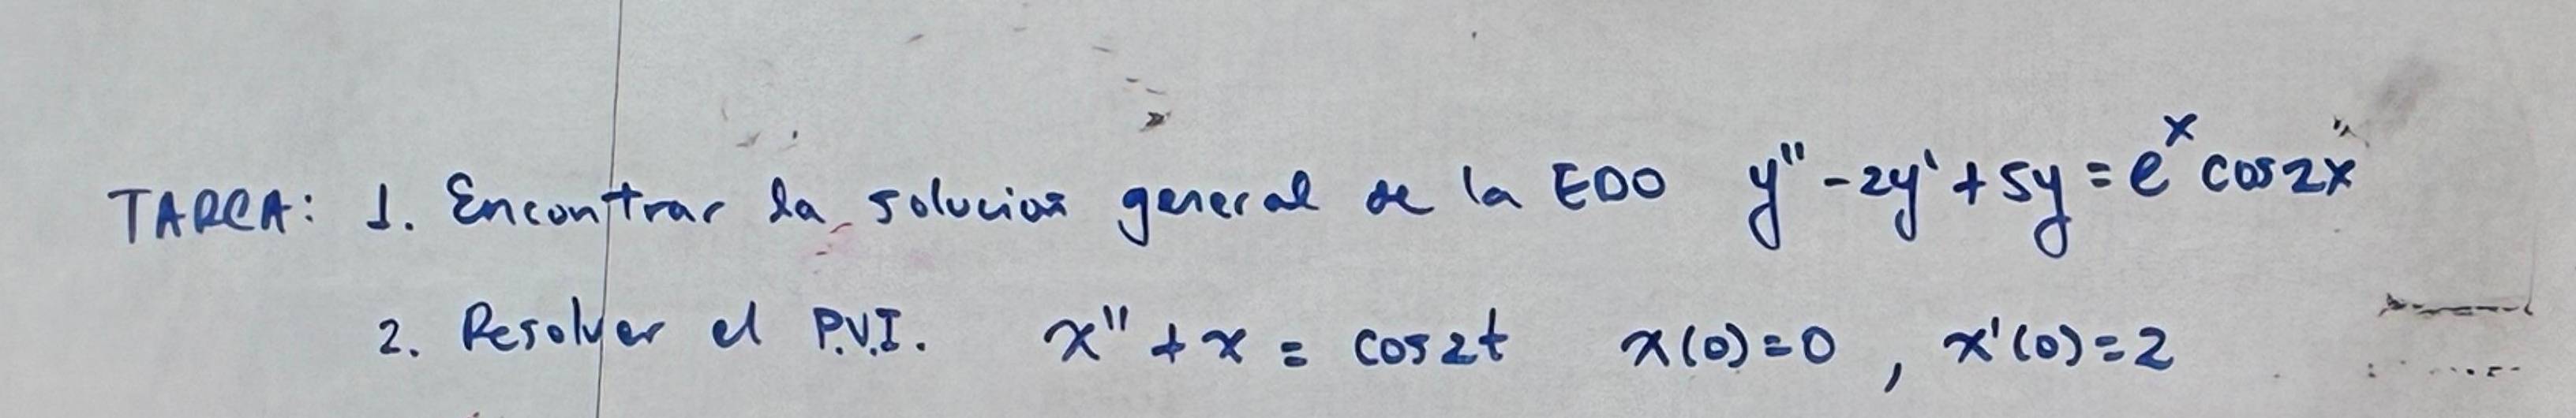 TAREA: 1. Encontrar la solucion general de la EDO y'' - 2y' + 5y = e^x cos 2x
2. Resolver el P.V.I. x'' + x = cos 2t x(0) = 0 , x'(0) = 2